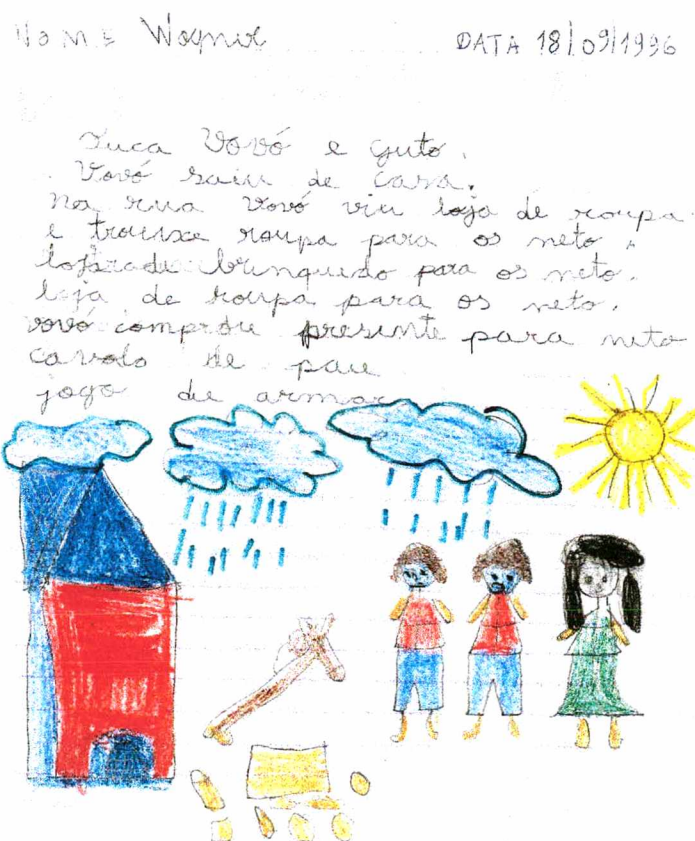 NOME Wagner DATA 18/09/1996
Juca Vovó e Guto.
Vovó saiu de casa.
Na rua vovó viu loja de roupa
e trouxe roupa para os neto.
brinquedo para os neto.
loja de roupa para os neto.
vovó comprou presente para neto
cavolo de pau
jogo de armar